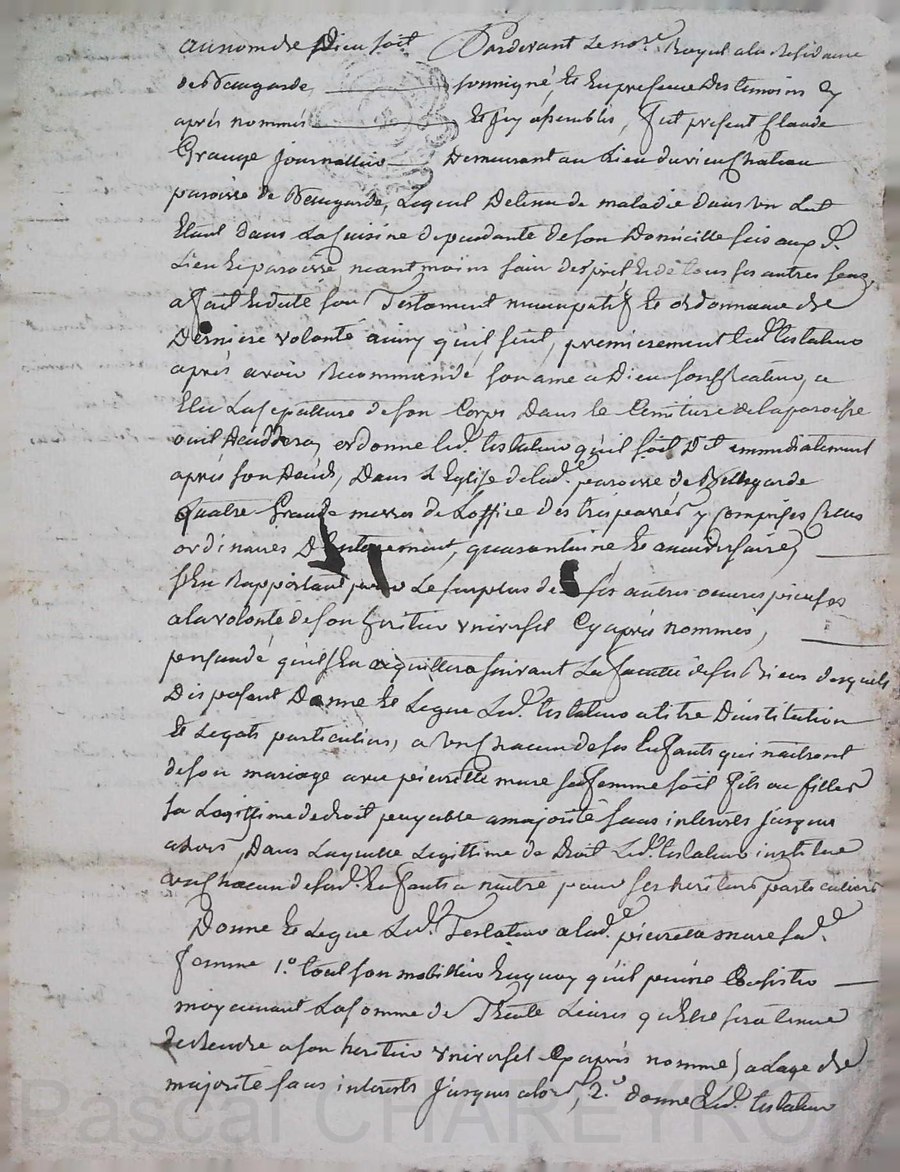 au nom de Dieu soit Pardevant le no.re Royal a la Residance
de Beaugarde, soussigné, et En presence Des temoins cy
après nommés et fuy assemblés, fut present Claude
Grange journallier Demeurant au Lieu du vieu Chateau
paroisse de Beaugarde, Lequel Detenu de maladie dans un Lit
Etant dans La Cuisine dependante de son Domicille sis aux d.
Lieu et paroisse, neantmoins sain desprit Et de tous ses autres sens,
a fait Et dicté son Testament nuncupatif et ordonnance de
Derniere volonté ainsy qu'il suit, premierement led. testateur
après avoir Recommandé son ame a Dieu son Createur, a
Elu La sepulture de son Corps Dans le Cimitiere de la paroisse
ou il decedera, ordonne led. testateur qu'il soit Dit immediatement
après son Deceds, Dans L'Eglise de lad. paroisse de Bellegarde
Quatre Grande messes de L'office des trepassés y Comprises Ceux
ordinaires D'Enterement, quarantaine et anniversaire,
s'En Rapportant pour Le surplus de ses autres oeuvres pieuses
a la volonté de son heritier universel Cy après nommés,
persuadé qu'il s'En aquittera suivant La faculté de ses Biens desquels
Disposant Donne Et Legue Led. testateur a titre D'institution
Et Legats particuliers, a un Chacun de ses Enfants qui naitront
de son mariage avec pierrette mure sa femme soit fils ou filles
La Legittime de droit payable a majorité sans interets jusques
alors, Dans Laquelle Legittime de Droit Led. testateur institue
un Chacun de sesd. Enfants a naitre pour ses heritiers particuliers
Donne Et Legue Led. Testateur a lad. pierrette mure sad.
femme 1.o tout son mobillier En quoy qu'il puisse Consister
moyennant La somme de Trente Livres qu'Elle sera tenue
de Rendre a son heritier universel Cy après nommé, a L'age de
majorité sans interets jusques alors, 2.o donne Led. testateur
Pascal CHAREYRON